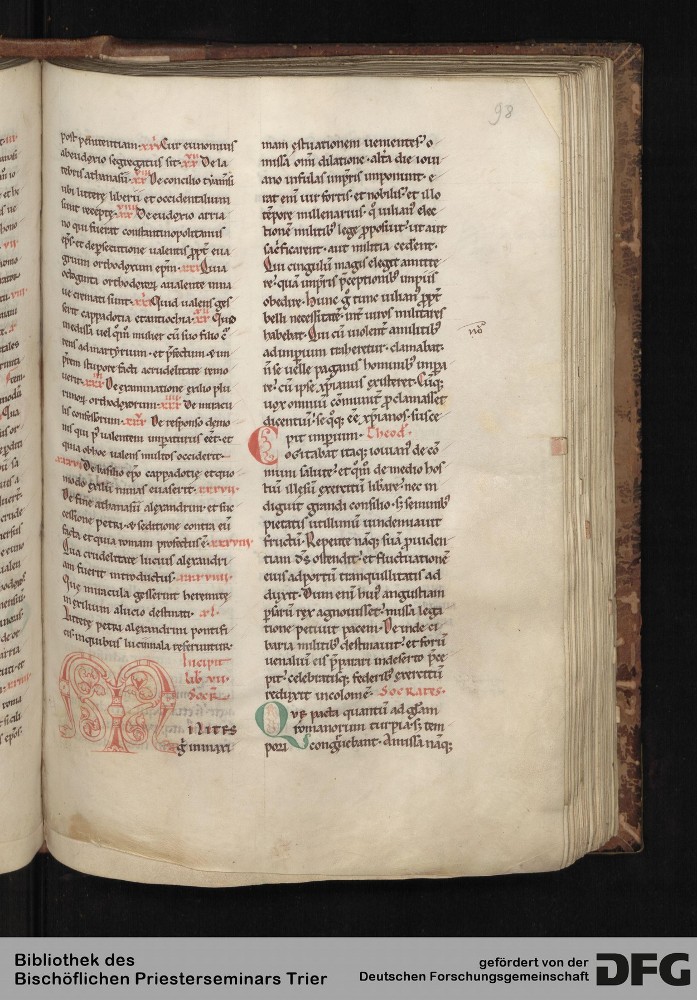 98
post penitentiam. xvi Cur eunomius
ab eudoxio segregatus sit. xvii De la
tebris athanasii. xviii De concilio tyanisi
ubi littere liberii et occidentalium
sunt recepte. xviiii De eudoxio arria
no qui fuerit constantinopolitanus
eps. et de psecutione ualentis ppt eua
grium orthodoxorum epm. xx Quia
octoginta orthodoxi a ualente in na
ue cremati sunt. Quid ualens ges
serit cappadotia et antiochia. Quod
in edissa uel qm mulier cu suo filio
rens ad martyrium. et pfectum
prem stupore facti a crudelitate remo
uerit. De examinatione exilio plu
rimorum orthodoxorum. De miracu
lis confessorum. De responso demo
nis qui p ualentem imperaturus eet. et
qua obhoc ualens multos occiderit.
De basilio epo cappadotie et quo
modo exilii minas euaserit. xxxvii.
De fine athanasii alexandrini. et suc
cessione petri. et seditione contra eu
facta et quia romam profectus e. xxxviii
Qua crudelitate lucius alexandri
am fuerit introductus. xxxviiii.
Que miracula gesserint heremite
in exilium a lucio destinati. xl.
Littere petri alexandrini pontifi
cis in quibus luciniala referuntur.
Incipit
lib. vii.
Socr
Milites
igr in maxi
mam estuationem uenientes. o
missa omi dilatione. alta die ioui
ano infulas impris imponunt. e
rat eni uir fortis. et nobilis. et illo
tepore millenarius. q iulian elec
tione militib lege pposuit. ut aut
sacificarent. aut militia cederent.
Qui cingulum magis elegit amitte
re. qua impris pceptionib impiis
obedire. Hunc g tunc iulian ppt
belli necessitate. int uiros militares
habebat. Qui cu uiolent a militib
ad imperium traheretur. clamabat.
n se uelle paganis hominib impa
re. cu ipse xpianus existeret. Cuq;
uox omniu comunit pclamasset
dicentiu. se qq; ee xpianos. susce
pit imperium. Theod.
Cogitabat itaq; iouian de co
muni salute. et qm de medio hos
tiu illesum exercitu libare. nec in
diguit grandi consilio. sz seminib
pietatis utillimu uindemiauit
fructu. Repente naq; sua prouiden
tiam ds ostendit. et fluctuatione
eius ad portu tranquillitatis ad
duxit. Dum eni hui angustiam
psaru rex agnouisset. missa lega
tione petiuit pacem. Deinde ci
baria militib destinauit. et foru
uenaliu eis pparari in deserto pce
pit. celebratisq; federib exercitum
reduxit incolome. Socrates.
Que pacta quantu ad glam
romanorum turpia. sz tem
pori congruebant. Amissa naq;
no
Bibliothek des
Bischöflichen Priesterseminars Trier
gefördert von der
Deutschen Forschungsgemeinschaft
DFG